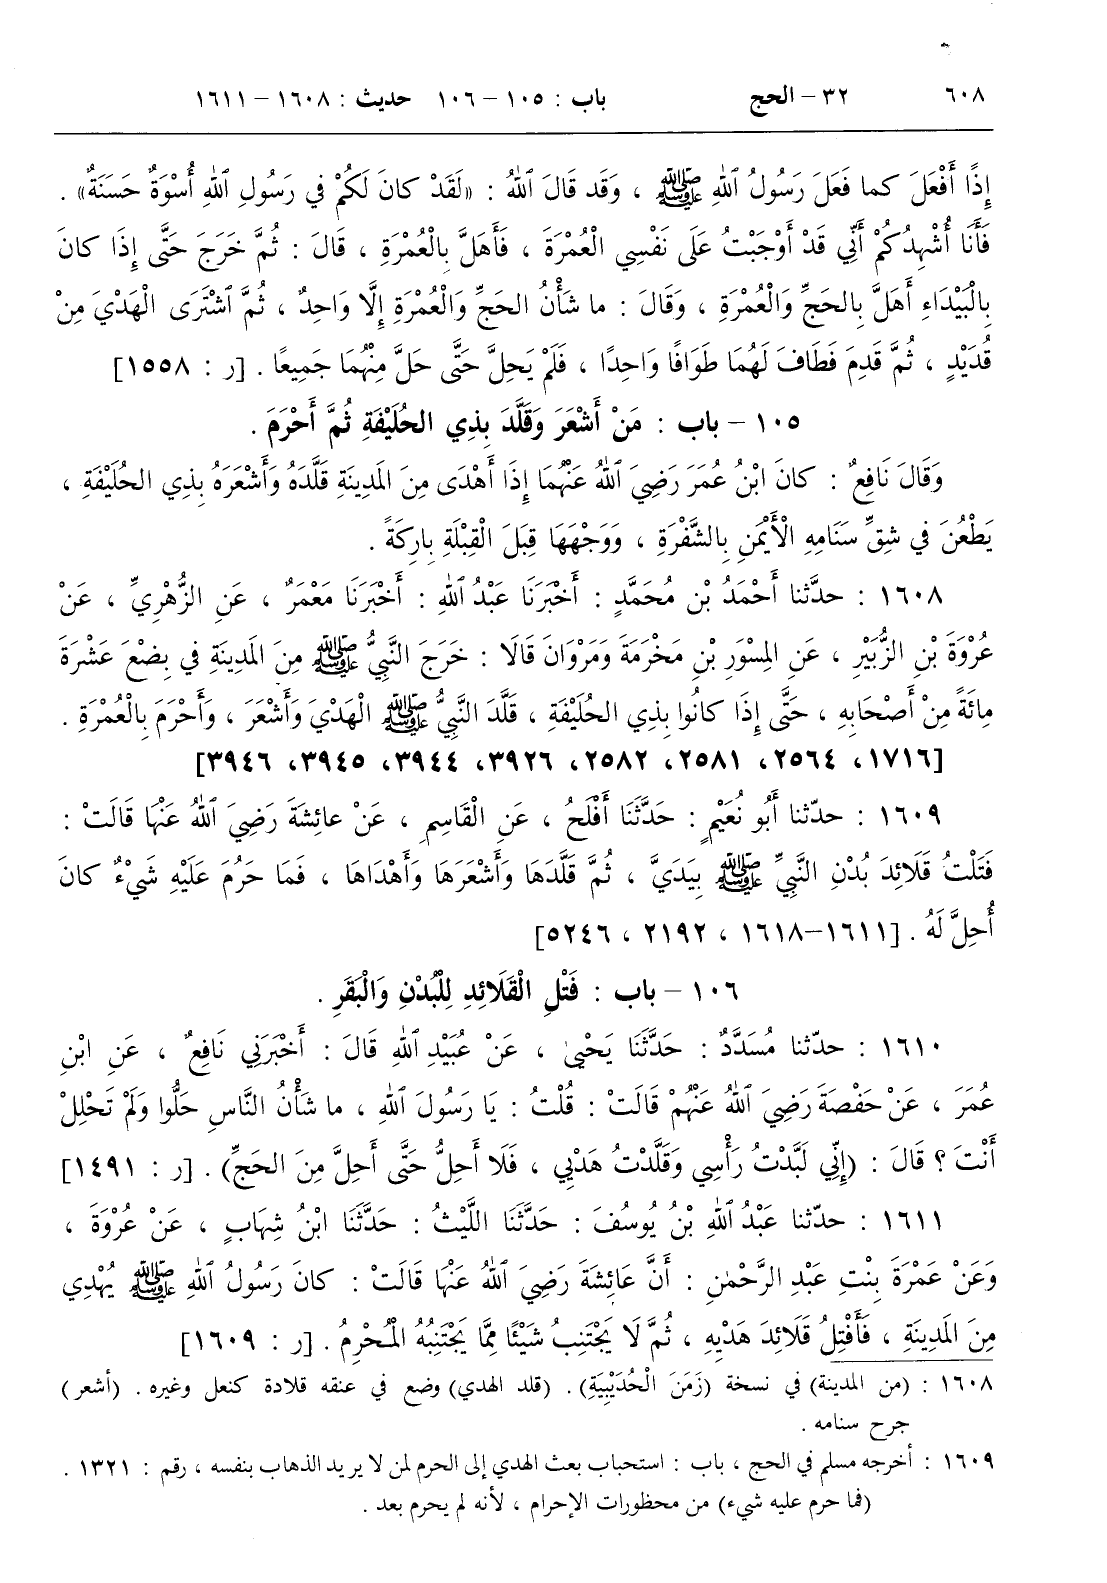 ٦٠٨ ٣٢ - الحج باب : ١٠٥ - ١٠٦ حديث : ١٦٠٨ - ١٦١١
إِذًا أَفْعَلَ كما فَعَلَ رَسُولُ ٱللهِ ﷺ ، وَقَد قَالَ ٱللهُ : «لَقَدْ كانَ لَكُمْ في رَسُولِ ٱللهِ أُسْوَةٌ حَسَنَةٌ» .
فَأَنَا أُشْهِدُكُمْ أَنِّي قَدْ أَوْجَبْتُ عَلَى نَفْسِي الْعُمْرَةَ ، فَأَهَلَّ بِالْعُمْرَةِ ، قَالَ : ثُمَّ خَرَجَ حَتَّى إِذَا كانَ
بِالْبَيْدَاءِ أَهَلَّ بِالحَجِّ وَالْعُمْرَةِ ، وَقَالَ : ما شَأْنُ الحَجِّ وَالْعُمْرَةِ إِلَّا وَاحِدٌ ، ثُمَّ ٱشْتَرَى الْهَدْيَ مِنْ
قُدَيْدٍ ، ثُمَّ قَدِمَ فَطَافَ لَهُمَا طَوَافًا وَاحِدًا ، فَلَمْ يَحِلَّ حَتَّى حَلَّ مِنْهُمَا جَمِيعًا . [ر : ١٥٥٨]
١٠٥ - باب : مَنْ أَشْعَرَ وَقَلَّدَ بِذِي الحُلَيْفَةِ ثُمَّ أَحْرَمَ .
وَقَالَ نَافِعٌ : كانَ ابْنُ عُمَرَ رَضِيَ ٱللهُ عَنْهُمَا إِذَا أَهْدَى مِنَ المَدِينَةِ قَلَّدَهُ وَأَشْعَرَهُ بِذِي الحُلَيْفَةِ ،
يَطْعُنَ في شِقِّ سَنَامِهِ الْأَيْمَنِ بِالشَّفْرَةِ ، وَوَجْهَهَا قِبَلَ الْقِبْلَةِ بِارِكَةً .
١٦٠٨ : حدّثنا أَحْمَدُ بْن مُحَمَّدٍ : أَخْبَرَنَا عَبْدُ ٱللهِ : أَخْبَرَنَا مَعْمَرٌ ، عَنِ الزُّهْرِيِّ ، عَنْ
عُرْوَةَ بْنِ الزُّبَيْرِ ، عَنِ الْمِسْوَرِ بْنِ مَخْرَمَةَ وَمَرْوَانَ قَالَا : خَرَجَ النَّبِيُّ ﷺ مِنَ المَدِينَةِ في بِضْعَ عَشْرَةَ
مِائَةً مِنْ أَصْحَابِهِ ، حَتَّى إِذَا كانُوا بِذِي الحُلَيْفَةِ ، قَلَّدَ النَّبِيُّ ﷺ الْهَدْيَ وَأَشْعَرَ ، وَأَحْرَمَ بِالْعُمْرَةِ .
[١٧١٦، ٢٥٦٤، ٢٥٨١، ٢٥٨٢، ٣٩٢٦، ٣٩٤٤، ٣٩٤٥، ٣٩٤٦]
١٦٠٩ : حدّثنا أَبُو نُعَيْمٍ : حَدَّثَنَا أَفْلَحُ ، عَنِ الْقَاسِمِ ، عَنْ عائِشَةَ رَضِيَ ٱللهُ عَنْهَا قَالَتْ :
فَتَلْتُ قَلَائِدَ بُدْنِ النَّبِيِّ ﷺ بِيَدَيَّ ، ثُمَّ قَلَّدَهَا وَأَشْعَرَهَا وَأَهْدَاهَا ، فَمَا حَرُمَ عَلَيْهِ شَيْءٌ كانَ
أُحِلَّ لَهُ . [١٦١١-١٦١٨ ، ٢١٩٢ ، ٥٢٤٦]
١٠٦ - باب : فَتْلِ الْقَلَائِدِ لِلْبُدْنِ وَالْبَقَرِ .
١٦١٠ : حدّثنا مُسَدَّدٌ : حَدَّثَنَا يَحْيىٰ ، عَنْ عُبَيْدِ ٱللهِ قَالَ : أَخْبَرَنِي نَافِعٌ ، عَنِ ابْنِ
عُمَرَ ، عَنْ حَفْصَةَ رَضِيَ ٱللهُ عَنْهُمْ قَالَتْ : قُلْتُ : يَا رَسُولَ ٱللهِ ، ما شَأْنُ النَّاسِ حَلُّوا وَلَمْ تَحْلِلْ
أَنْتَ ؟ قَالَ : (إِنِّي لَبَّدْتُ رَأْسِي وَقَلَّدْتُ هَدْيِي ، فَلَا أَحِلُّ حَتَّى أَحِلَّ مِنَ الحَجِّ) . [ر : ١٤٩١]
١٦١١ : حدّثنا عَبْدُ ٱللهِ بْنُ يُوسُفَ : حَدَّثَنَا اللَّيْثُ : حَدَّثَنَا ابْنُ شِهَابٍ ، عَنْ عُرْوَةَ ،
وَعَنْ عَمْرَةَ بِنْتِ عَبْدِ الرَّحْمٰنِ : أَنَّ عَائِشَةَ رَضِيَ ٱللهُ عَنْهَا قَالَتْ : كانَ رَسُولُ ٱللهِ ﷺ يُهْدِي
مِنَ المَدِينَةِ ، فَأَفْتِلُ قَلَائِدَ هَدْيِهِ ، ثُمَّ لَا يَجْتَنِبُ شَيْئًا مِمَّا يَجْتَنِبُهُ الْمُحْرِمُ . [ر : ١٦٠٩]
١٦٠٨ : (من المدينة) في نسخة (زَمَنَ الْحُدَيْبِيَةِ) . (قلد الهدي) وضع في عنقه قلادة كنعل وغيره . (أشعر )
جرح سنامه .
١٦٠٩ : أخرجه مسلم في الحج ، باب : استحباب بعث الهدي إلى الحرم لمن لا يريد الذهاب بنفسه ، رقم : ١٣٢١ .
(فما حرم عليه شيء) من محظورات الإحرام ، لأنه لم يحرم بعد .